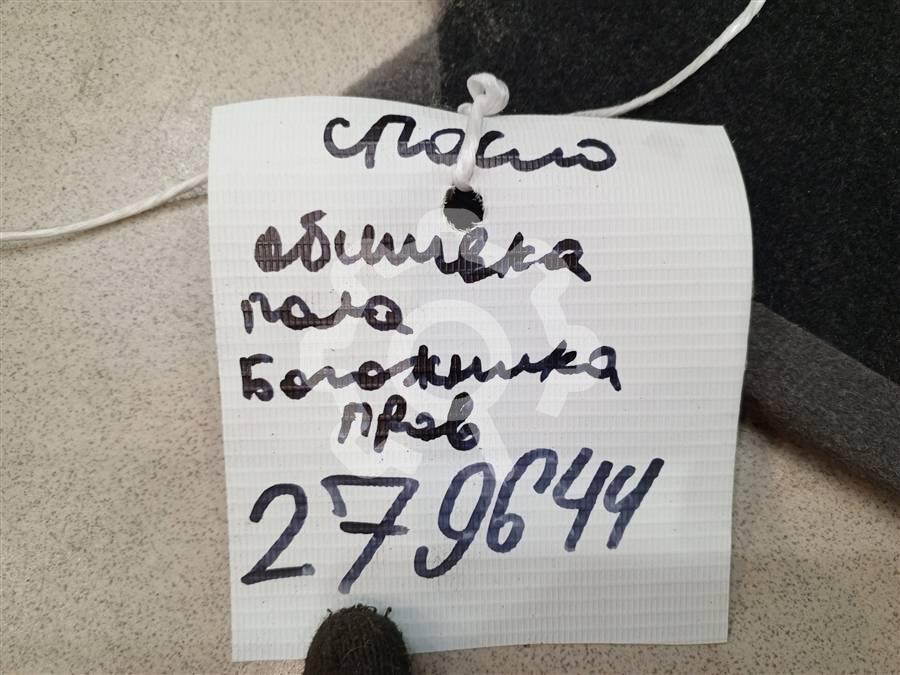 спасио
обшивка
пола
Багажника
прав
279644